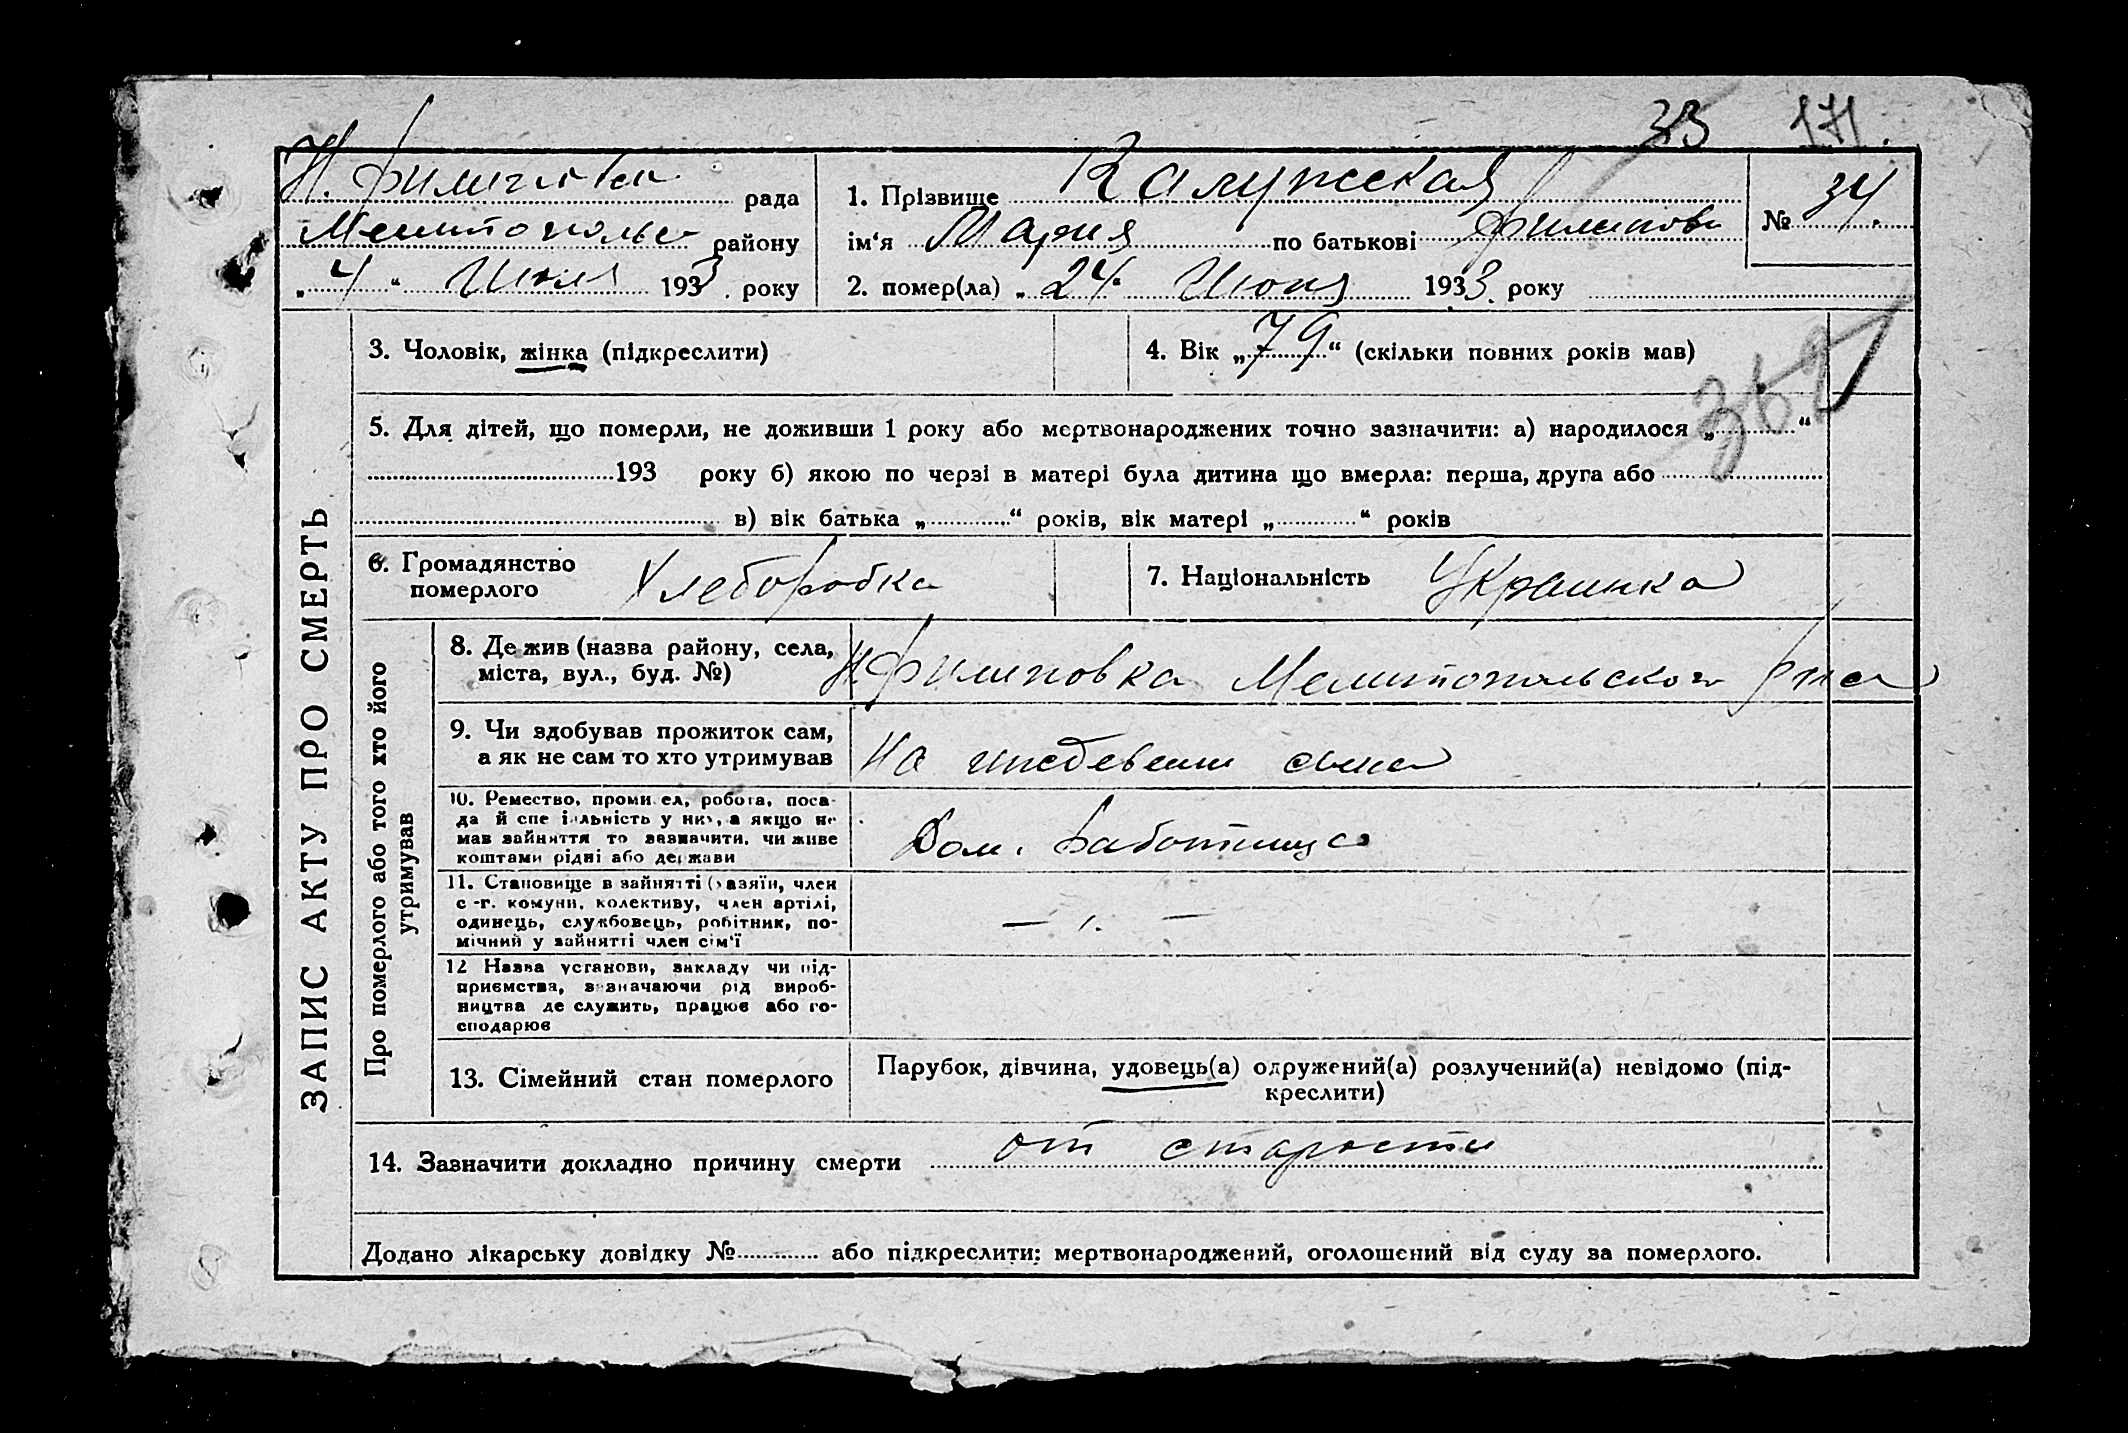 33 171.
Н. Филиповск рада
Мелитопольс району
„4“ Июля 1933. року
1. Прізвище Калужская
ім'я Мария по батькові Филипови
2. помер(ла) „24“ Июня 1933. року
№ 34.
ЗАПИС АКТУ ПРО СМЕРТЬ
3. Чоловік, жінка (підкреслити)
4. Вік „79“ (скільки повних років мав)
5. Для дітей, що померли, не доживши 1 року або мертвонароджених точно зазначити: а) народилося „ “
193 року б) якою по черзі в матері була дитина що вмерла: перша, друга або
в) вік батька „ “ років, вік матері „ “ років
6. Громадянство
померлого Хлеборобка
7. Національність Украинка
Про померлого або того хто його
утримував
8. Де жив (назва району, села,
міста, вул., буд. №)
Н. Филиповка Мелитопольского р-на
9. Чи здобував прожиток сам,
а як не сам то хто утримував
На иждевении сына
10. Ремество, промисел, робота, поса-
да й спеціальність у них, а якщо не
мав зайняття то зазначити, чи живе
коштами рідні або держави
Дом. Работница
11. Становище в зайнятті (хазяїн, член
с.-г. комуни, колективу, член артілі,
одинець, службовець, робітник, по-
мічний у зайнятті член сім'ї
— „ —
12 Назва установи, закладу чи під-
приємства, зазначаючи рід вироб-
ництва де служить, працює або го-
сподарює
13. Сімейний стан померлого
Парубок, дівчина, удовець(а) одружений(а) розлучений(а) невідомо (під-
креслити)
14. Зазначити докладно причину смерти от старости
Додано лікарську довідку № або підкреслити: мертвонароджений, оголошений від суду за померлого.